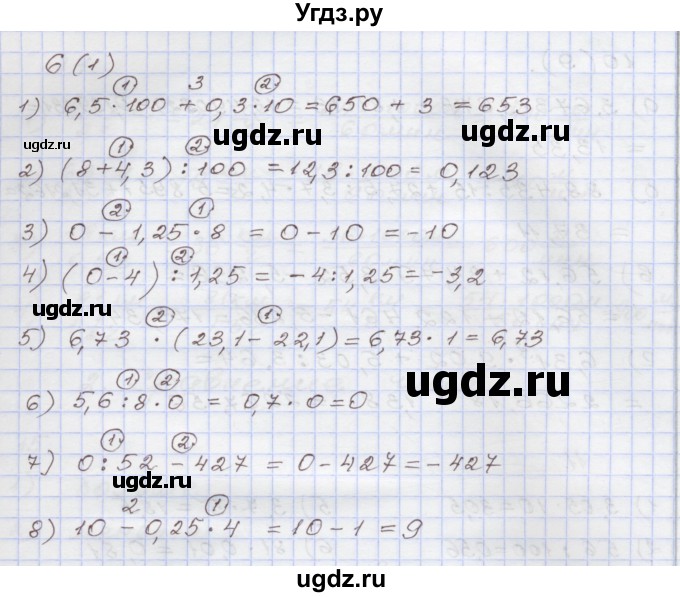 Угдз.ру
6 (1)
① 3 ②
1) 6,5 · 100 + 0,3 · 10 = 650 + 3 = 653
ugdz.ru
ugdz.ru
ugdz.ru
① ②
2) (8+4,3) : 100 = 12,3 : 100 = 0,123
② ①
3) 0 - 1,25 · 8 = 0 - 10 = -10
① ②
4) (0-4) : 1,25 = -4 : 1,25 = -3,2
ugdz.ru
② ①
5) 6,73 · (23,1 - 22,1) = 6,73 · 1 = 6,73
ugdz.ru
① ②
6) 5,6 : 8 · 0 = 0,7 · 0 = 0
① ②
7) 0 : 52 - 427 = 0 - 427 = -427
ugdz.ru
2 ①
8) 10 - 0,25 · 4 = 10 - 1 = 9
ugdz.ru
ugdz.ru